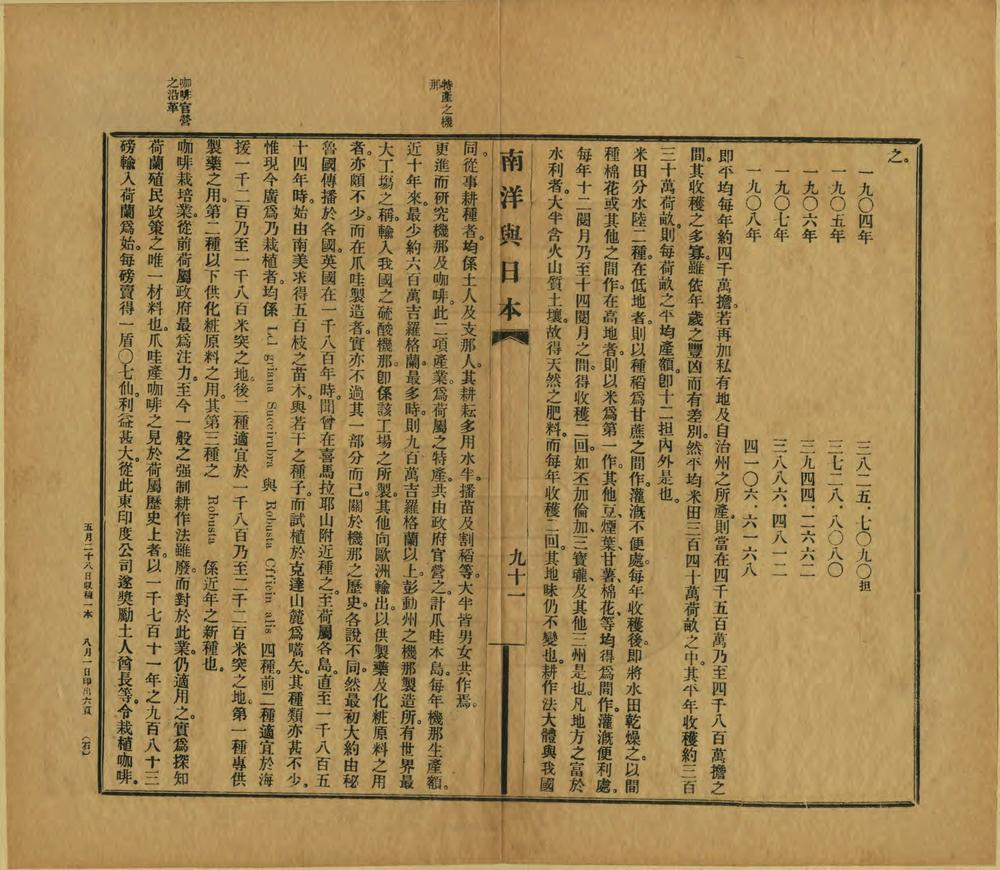 之。
一九〇四年 三八二五.七〇九〇担
一九〇五年 三七二八.八〇八〇
一九〇六年 三九四四.二六六二
一九〇七年 三八八六.四八一二
一九〇八年 四一〇六.六一六八
即平均每年約四千萬擔。若再加私有地及自治州之所產。則當在四千五百萬乃至四千八百萬擔之
間。其收穫之多寡。雖依年歲之豐凶而有差別。然平均米田三百四十萬荷畝之中。其平年收穫約三百
三十萬荷畝。則每荷畝之平均產額。卽十二担內外是也。
米田分水陸二種。在低地者。則以種稻爲甘蔗之間作。灌漑不便處。每年收穫後。即將水田乾燥之。以間
種棉花或其他之間作。在高地者。則以米爲第一作。其他豆、煙葉、甘薯、棉花、等均得爲間作。灌漑便利處。
每年十二閱月乃至十四閱月之間。得收穫二回。如丕加倫加三寶瓏、及其他三州是也。凡地方之富於
水利者。大半含火山質土壤。故得天然之肥料。而每年收穫二回。其地味仍不變也。耕作法大體與我國
南洋與日本
九十一
同。從事耕種者。均係土人及支那人。其耕耘多用水牛。播苗及割稻等。大半皆男女共作焉。
特產之機那
更進而研究機那及咖啡。此二項產業。爲荷屬之特產。共由政府官營之。計爪哇本島每年機那生產額。
近十年來。最少約六百萬吉羅格蘭。最多時。則九百萬吉羅格蘭以上。彭動州之機那製造所。有世界最
大工塲之稱。輸入我國之硫酸機那。卽係該工塲之所製。其他向歐洲輸出以供製藥及化粧原料之用
者。亦頗不少。而在爪哇製造者。實亦不過其一部分而已。關於機那之歷史。各說不同。然最初大約由秘
魯國傳播於各國。英國在一千八百年時。聞曾在喜馬拉耶山附近種之。至荷屬各島。直至一千八百五
十四年時。始由南美求得五百枝之苗木。與若干之種子。而試植於克達山麓。爲嚆矢。其種類亦甚不少。
惟現今廣爲乃栽植者。均係 griana Succirubra 與 Robusta Officinalis 四種。前二種適宜於海
拔一千二百乃至一千八百米突之地。後二種適宜於一千八百乃至二千二百米突之地。第一種專供
製藥之用。第二種以下供化粧原料之用。其第三種之 Robusta 係近年之新種也。
咖啡官營之沿革
咖啡栽培業。從前荷屬政府最爲注力。至今一般之强制耕作法雖廢。而對於此業。仍適用之。實爲探知
荷蘭殖民政策之唯一材料也。爪哇產咖啡之見於荷屬歷史上者。以一千七百十一年之九百八十三
磅輸入荷蘭爲始。每磅賣得一盾〇七仙。利益甚大。從此東印度公司遂奬勵土人酋長等。令栽植咖啡。
五月二十八日收稿一本 八月一日印出六頁 （石）